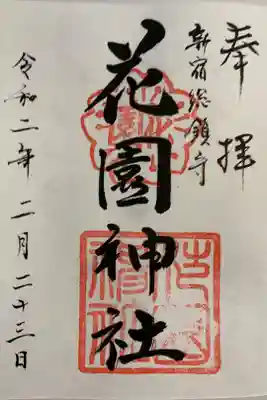 奉拝
新宿総鎮守
花園神社
令和二年二月二十三日